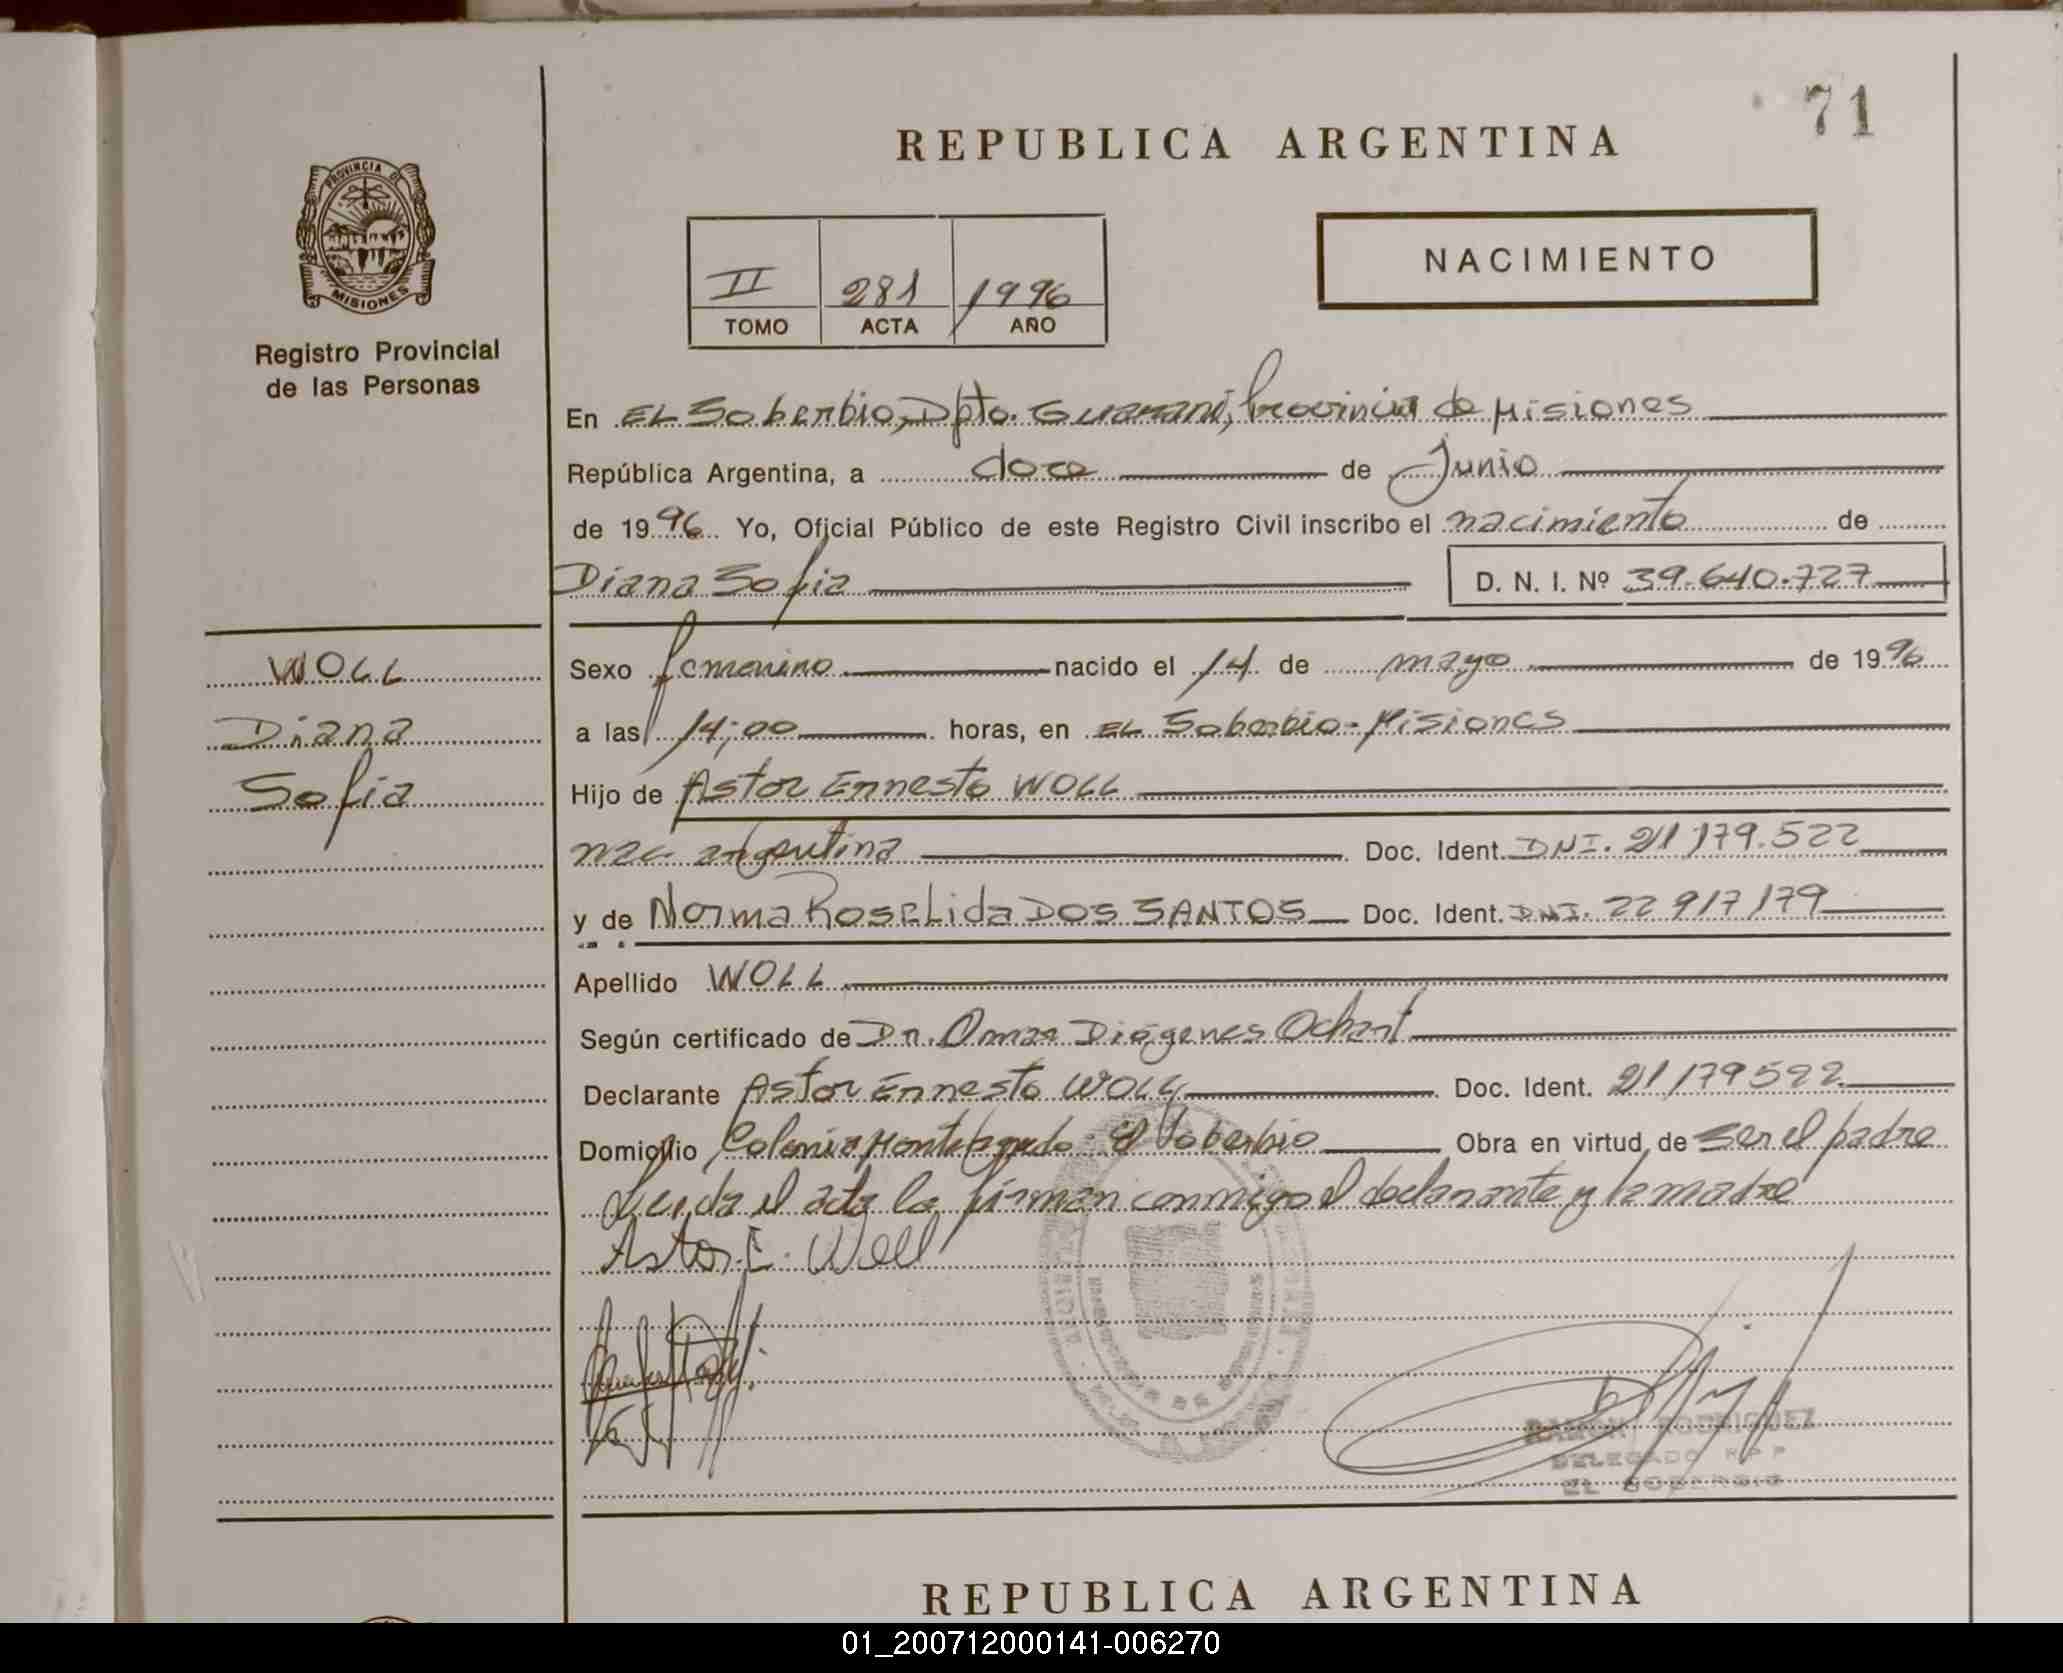 71
REPUBLICA ARGENTINA
PROVINCIA DE
MISIONES
Registro Provincial
de las Personas
II 281 1996
TOMO ACTA AÑO
NACIMIENTO
En EL Soberbio, Dpto. Guarani, Provincia de Misiones
República Argentina, a doce de Junio
de 1996 Yo, Oficial Público de este Registro Civil inscribo el nacimiento de
Diana Sofia D. N. I. Nº 39.640.727
WOLL
Diana
Sofia
Sexo femenino nacido el 14 de mayo de 1996
a las 14;00 horas, en EL Soberbio - Misiones
Hijo de Astor Ernesto WOLL
nac. argentina Doc. Ident. DNI. 21179.522
y de Norma Roselida DOS SANTOS Doc. Ident. DNI. 22917179
Apellido WOLL
Según certificado de Dr. Omar Diógenes Ochant
Declarante Astor Ernesto WOLL Doc. Ident. 21179522
Domicilio Colonia Monteagudo El Soberbio Obra en virtud de ser el padre
Leida el acta la firman conmigo el declarante y la madre
Astor E. Woll
RAMON RODRIGUEZ
DELEGADO R P P
EL SOBERBIO
REPUBLICA ARGENTINA
01_200712000141-006270